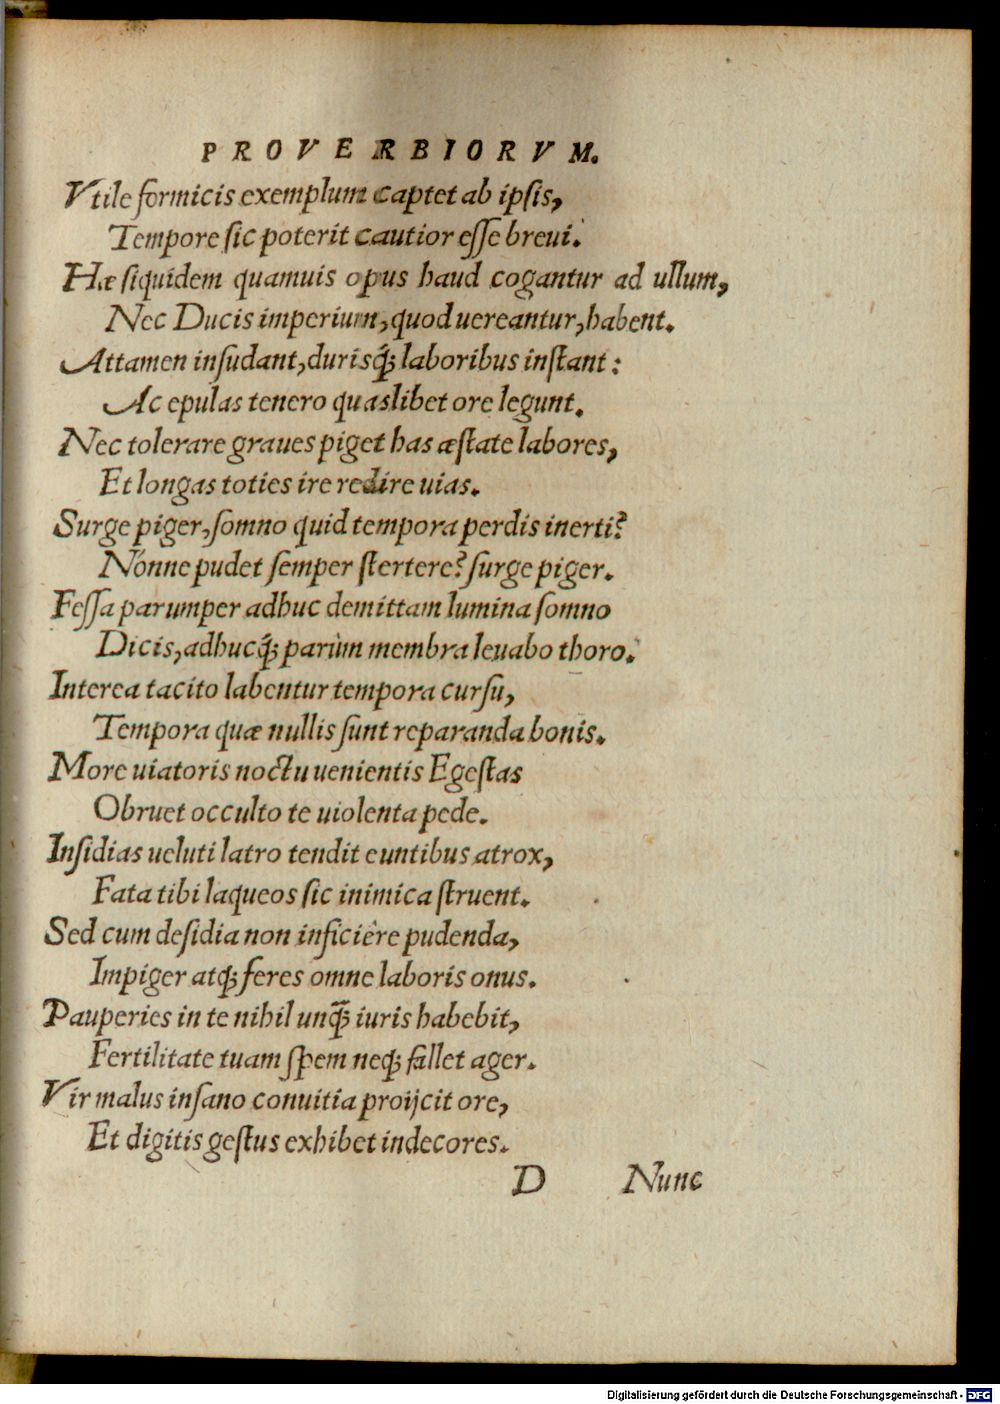 PROVERBIORVM.
Vtile formicis exemplum captet ab ipsis,
Tempore sic poterit cautior esse breui.
Hæ siquidem quamuis opus haud cogantur ad ullum,
Nec Ducis imperium, quod uereantur, habent.
Attamen insudant, durisq́; laboribus instant:
Ac epulas tenero quaslibet ore legunt.
Nec tolerare graues piget has æstate labores,
Et longas toties ire redire uias.
Surge piger, somno quid tempora perdis inerti?
Nónne pudet semper stertere? surge piger.
Fessa parumper adhuc demittam lumina somno
Dicis, adhucq́; parùm membra leuabo thoro.
Interea tacito labentur tempora cursu,
Tempora quæ nullis sunt reparanda bonis.
More uiatoris noctu uenientis Egestas
Obruet occulto te uiolenta pede.
Insidias ueluti latro tendit euntibus atrox,
Fata tibi laqueos sic inimica struent.
Sed cum desidia non inficiêre pudenda,
Impiger atq; feres omne laboris onus.
Pauperies in te nihil unq̃; iuris habebit,
Fertilitate tuam spem neq; fallet ager.
Vir malus insano conuitia proijcit ore,
Et digitis gestus exhibet indecores.
D Nunc
Digitalisierung gefördert durch die Deutsche Forschungsgemeinschaft - DFG